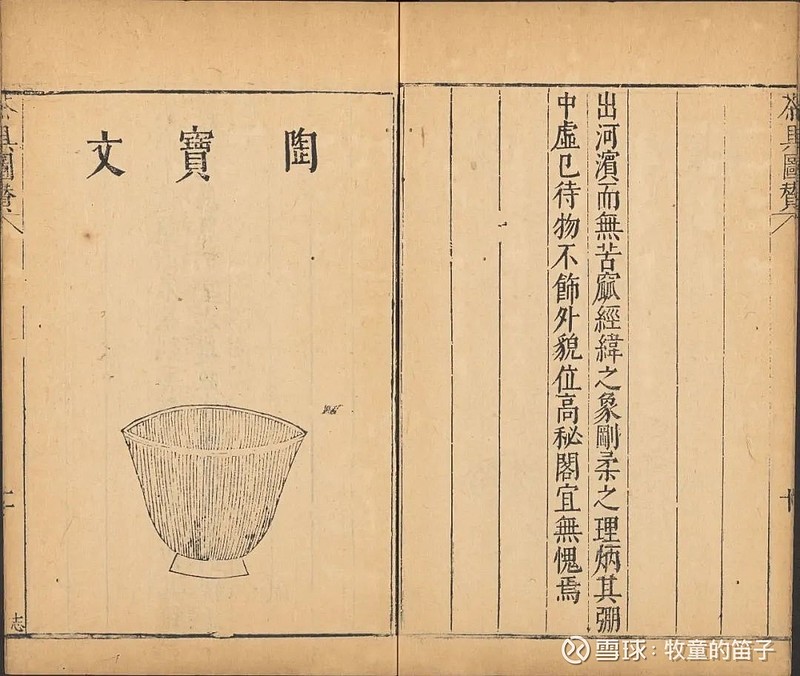 茶具圖贊
出河濱而無苦窳經緯之象剛柔之理炳其弸
中虛已待物不飾外貌位高秘閣宜無愧焉
陶寶文
茶具圖贊
志
雪球：牧童的笛子